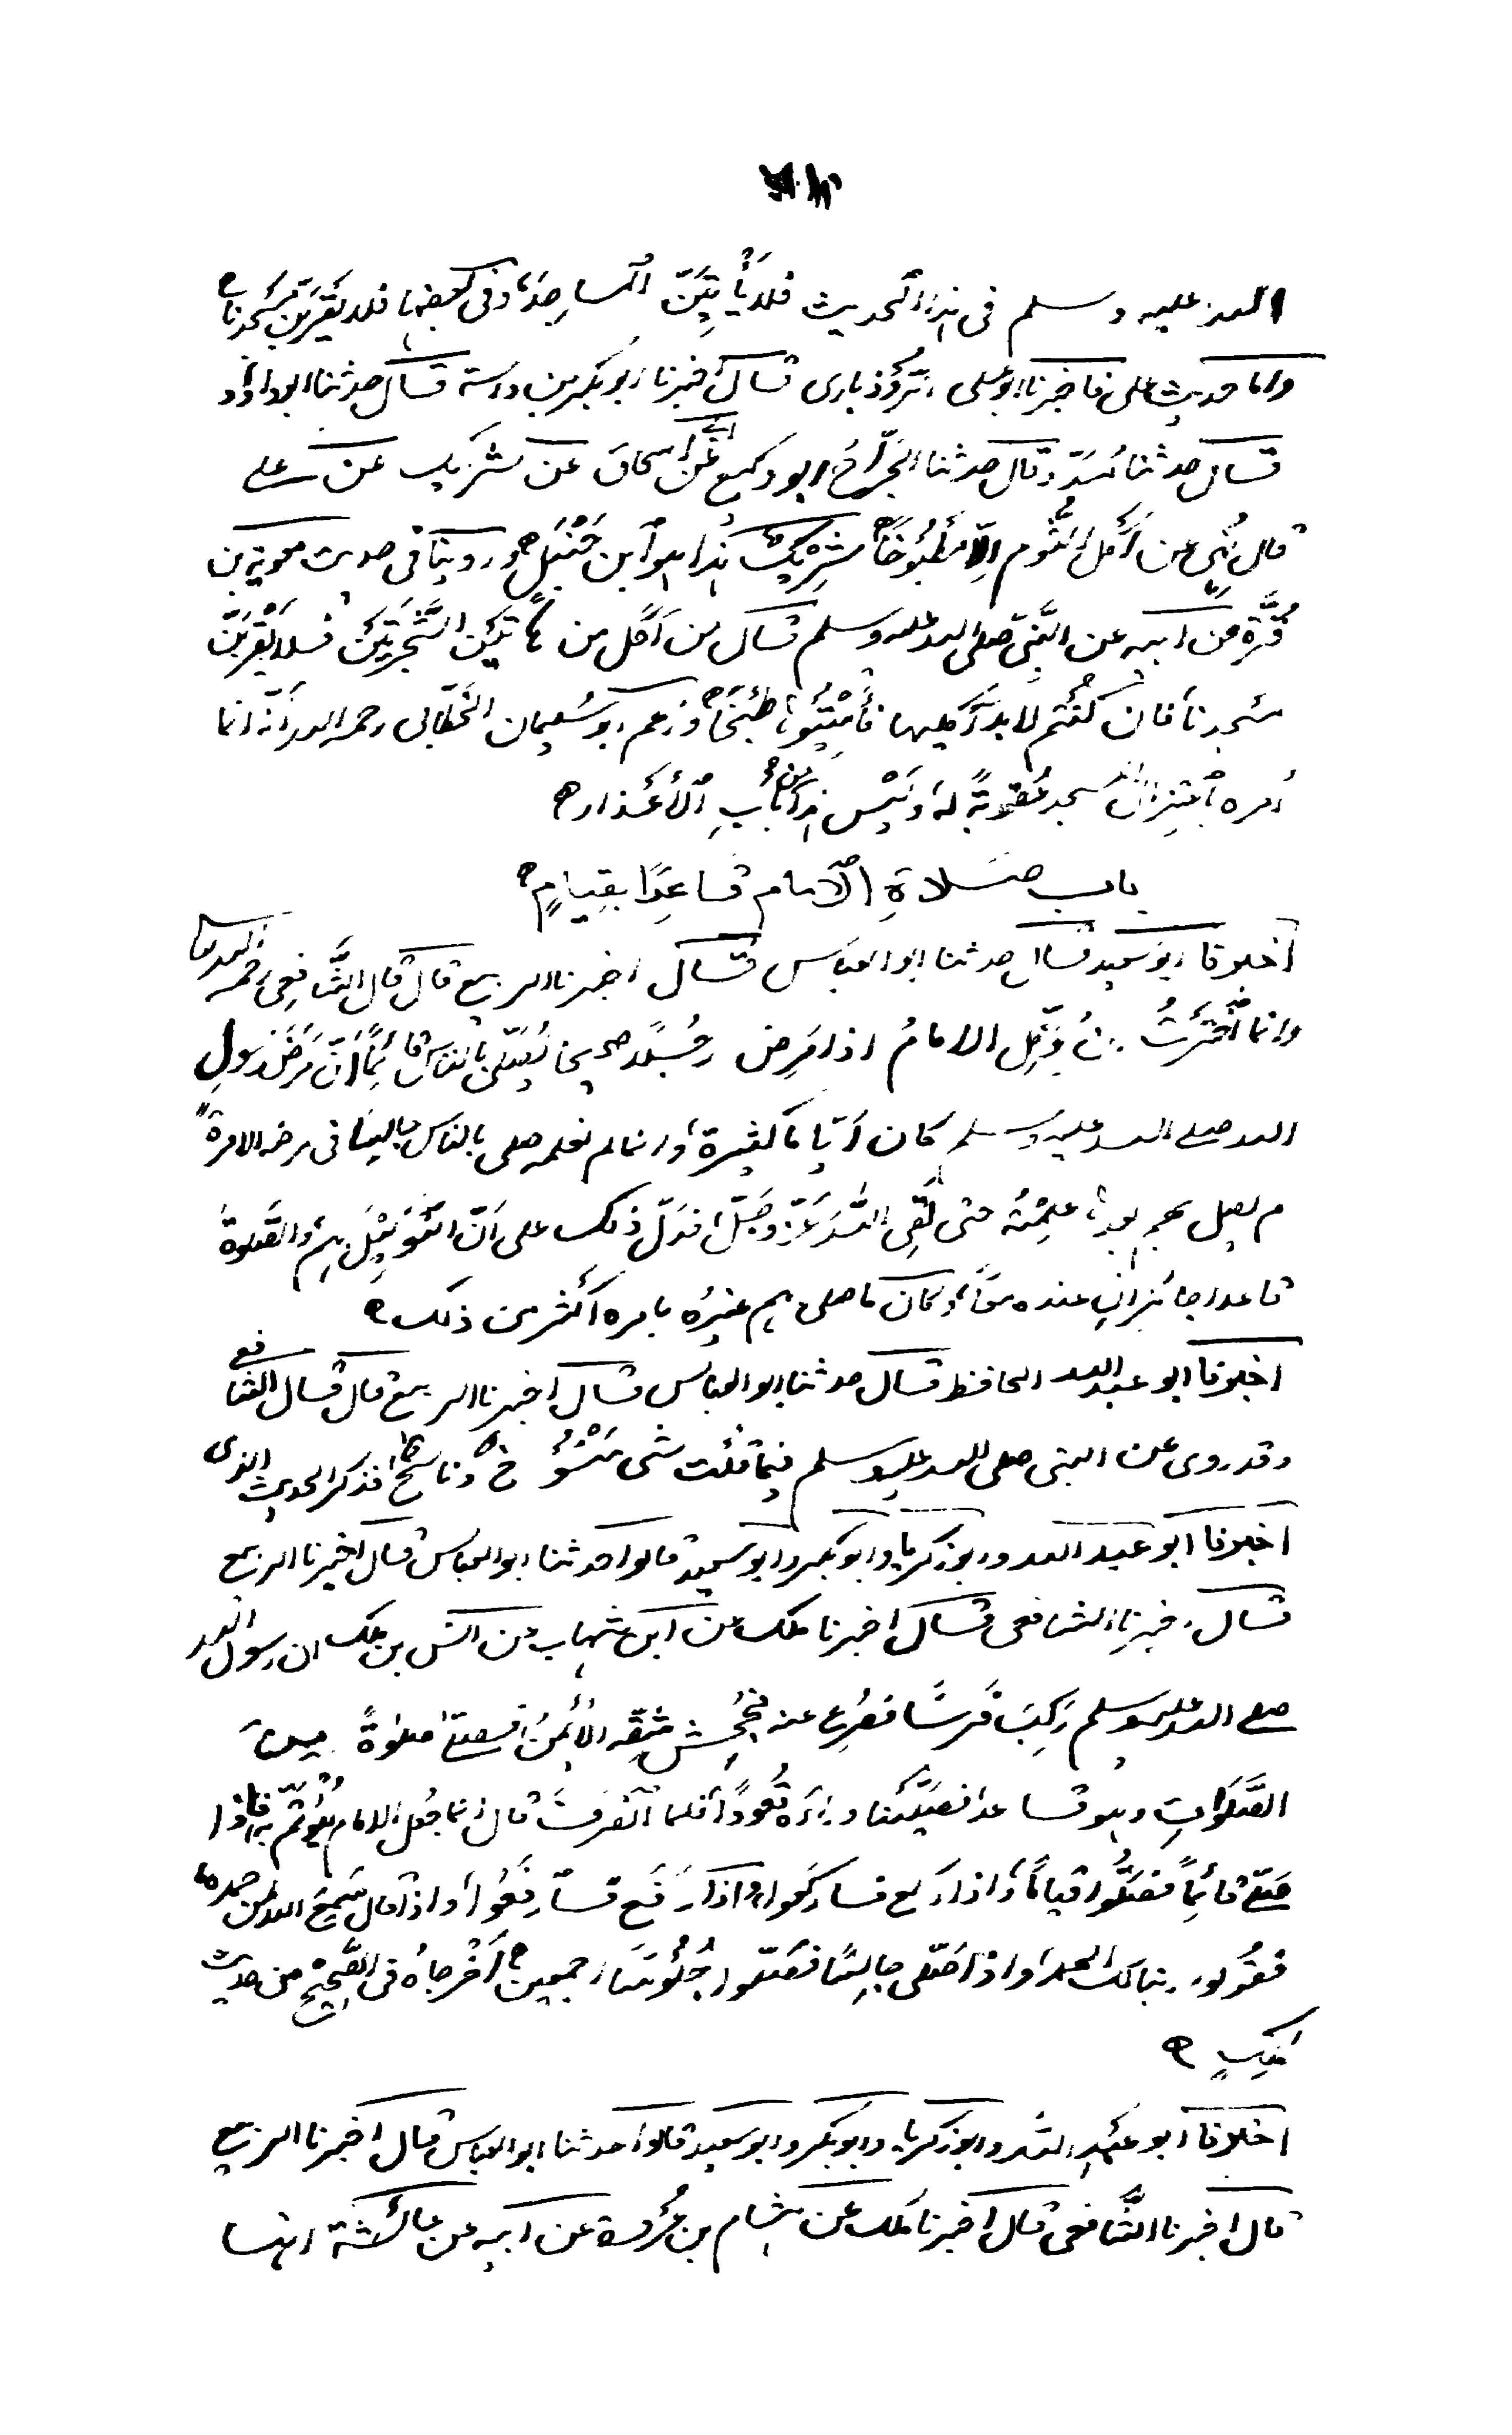 الله عليه وسلم في هذا الحديث فلا يأتين المساجد، وفي بعضها فلا يقربن مسجدنا ه
واما حديث علي فاخبرنا ابو علي الرُّوذباري قال اخبرنا ابو بكر بن داسة قال حدثنا ابو داود
قال حدثنا مسدد قال حدثنا الجَرّاحُ ابو وكيع عن أبي إسحاق عن شريك عن علي
قال نُهي عن أكل الثُّوم إلّا مَطْبُوخًا ه شَرِيْكٌ هذا هو ابن حَنْبَلٍ ه وروينا في حديث معوية بن
قُرَّة عن ابيه عن النَّبِيّ صلى الله عليه وسلم قال من أَكَل من هاتَيْن الشَّجَرتَيْن فلا يَقْرَبَنّ
مسجدنا فان كنتم لا بد آكليها فأَمِيْتُوها طَبْخًا ه وزعم ابو سُليمان الخَطّابي رحمه الله أنّه انما
أمره باعتِزال المسجد عُقوبةً له وَليْس هذا من بابِ الأَعْذار ه
باب صَلاةِ الامام قاعِدًا بقِيَامٍ ه
أخبرنا ابو سَعيد قال حدثنا ابو العبَاس قال اخبرنا الربيع قال قال الشَّافِعي رحمه الله
وانما اخْتَرتُ ان يُوَكِّل الامامُ اذا مَرِض رجُلًا صحيحا يُصَلّي بالناس قائمًا أنّ مَرَضَ رسولِ
الله صلى الله عليه وسلم كان أيّامًا كثيرة، وانما لم نعلمه صلى بالناس جالِسًا في مرضه الا مرةً
لم يصل بهم بعدها عَلِمْتُه حتى لَقِي اللهَ عَزّ وجَلّ، فدَلّ ذلك على أَنّ التَوْكِيْلَ بهم والصَّلوةَ
قاعدا جائزان عنده معًا، وكان ما صلى بهم غيرُه بامره أكثر من ذلك ه
اخبرنا ابو عبد الله الحافظ قال حدثنا ابو العباس قال اخبرنا الربيع قال قال الشافعي
وقد روي عن النبي صلى الله عليه وسلم فيما قلت شي مَنْسُوخ وناسخ فذكر الحديث الذي
اخبرنا ابو عبد الله وابو زكريا وابو بكر وابو سعيد قالوا حدثنا ابو العباس قال اخبرنا الربيع
قال اخبرنا الشافعي قال اخبرنا ملك عن ابن شهاب عن انس بن ملك ان رسول الله
صلى الله عليه وسلم رَكِبَ فَرسًا فصُرِع عنه فجُحِش شِقّه الأَيْمنُ، فصلى صلوةً من
الصَّلَواتِ وهو قاعد فصَلَّيْنا وراءه قُعودًا، فلما انْصَرَفَ قال انما جُعل الامام ليُؤْتَمّ به فاذا
صَلّى قائِمًا فصَلُّوا قيامًا، واذا ركع فاركعوا، واذا رَفَع فارْفَعُوا، واذا قال سَمِعَ الله لمن حمده
فقُولوا ربنا لك الحمد، واذا صَلّى جالِسًا فصَلّوا جُلُوسًا اجمعين ه أَخْرجاهُ في الصَّحِيْح من حديث
ملكٍ ه
اخبرنا ابو عَبْدِ الله وابو زكريا وابو بكر وابو سَعيد قالوا حدثنا ابو العباس قال اخبرنا الربيع
قال اخبرنا الشَّافعي قال اخبرنا ملك عن هشام بن عُرْوة عن ابيه عن عائشة انها